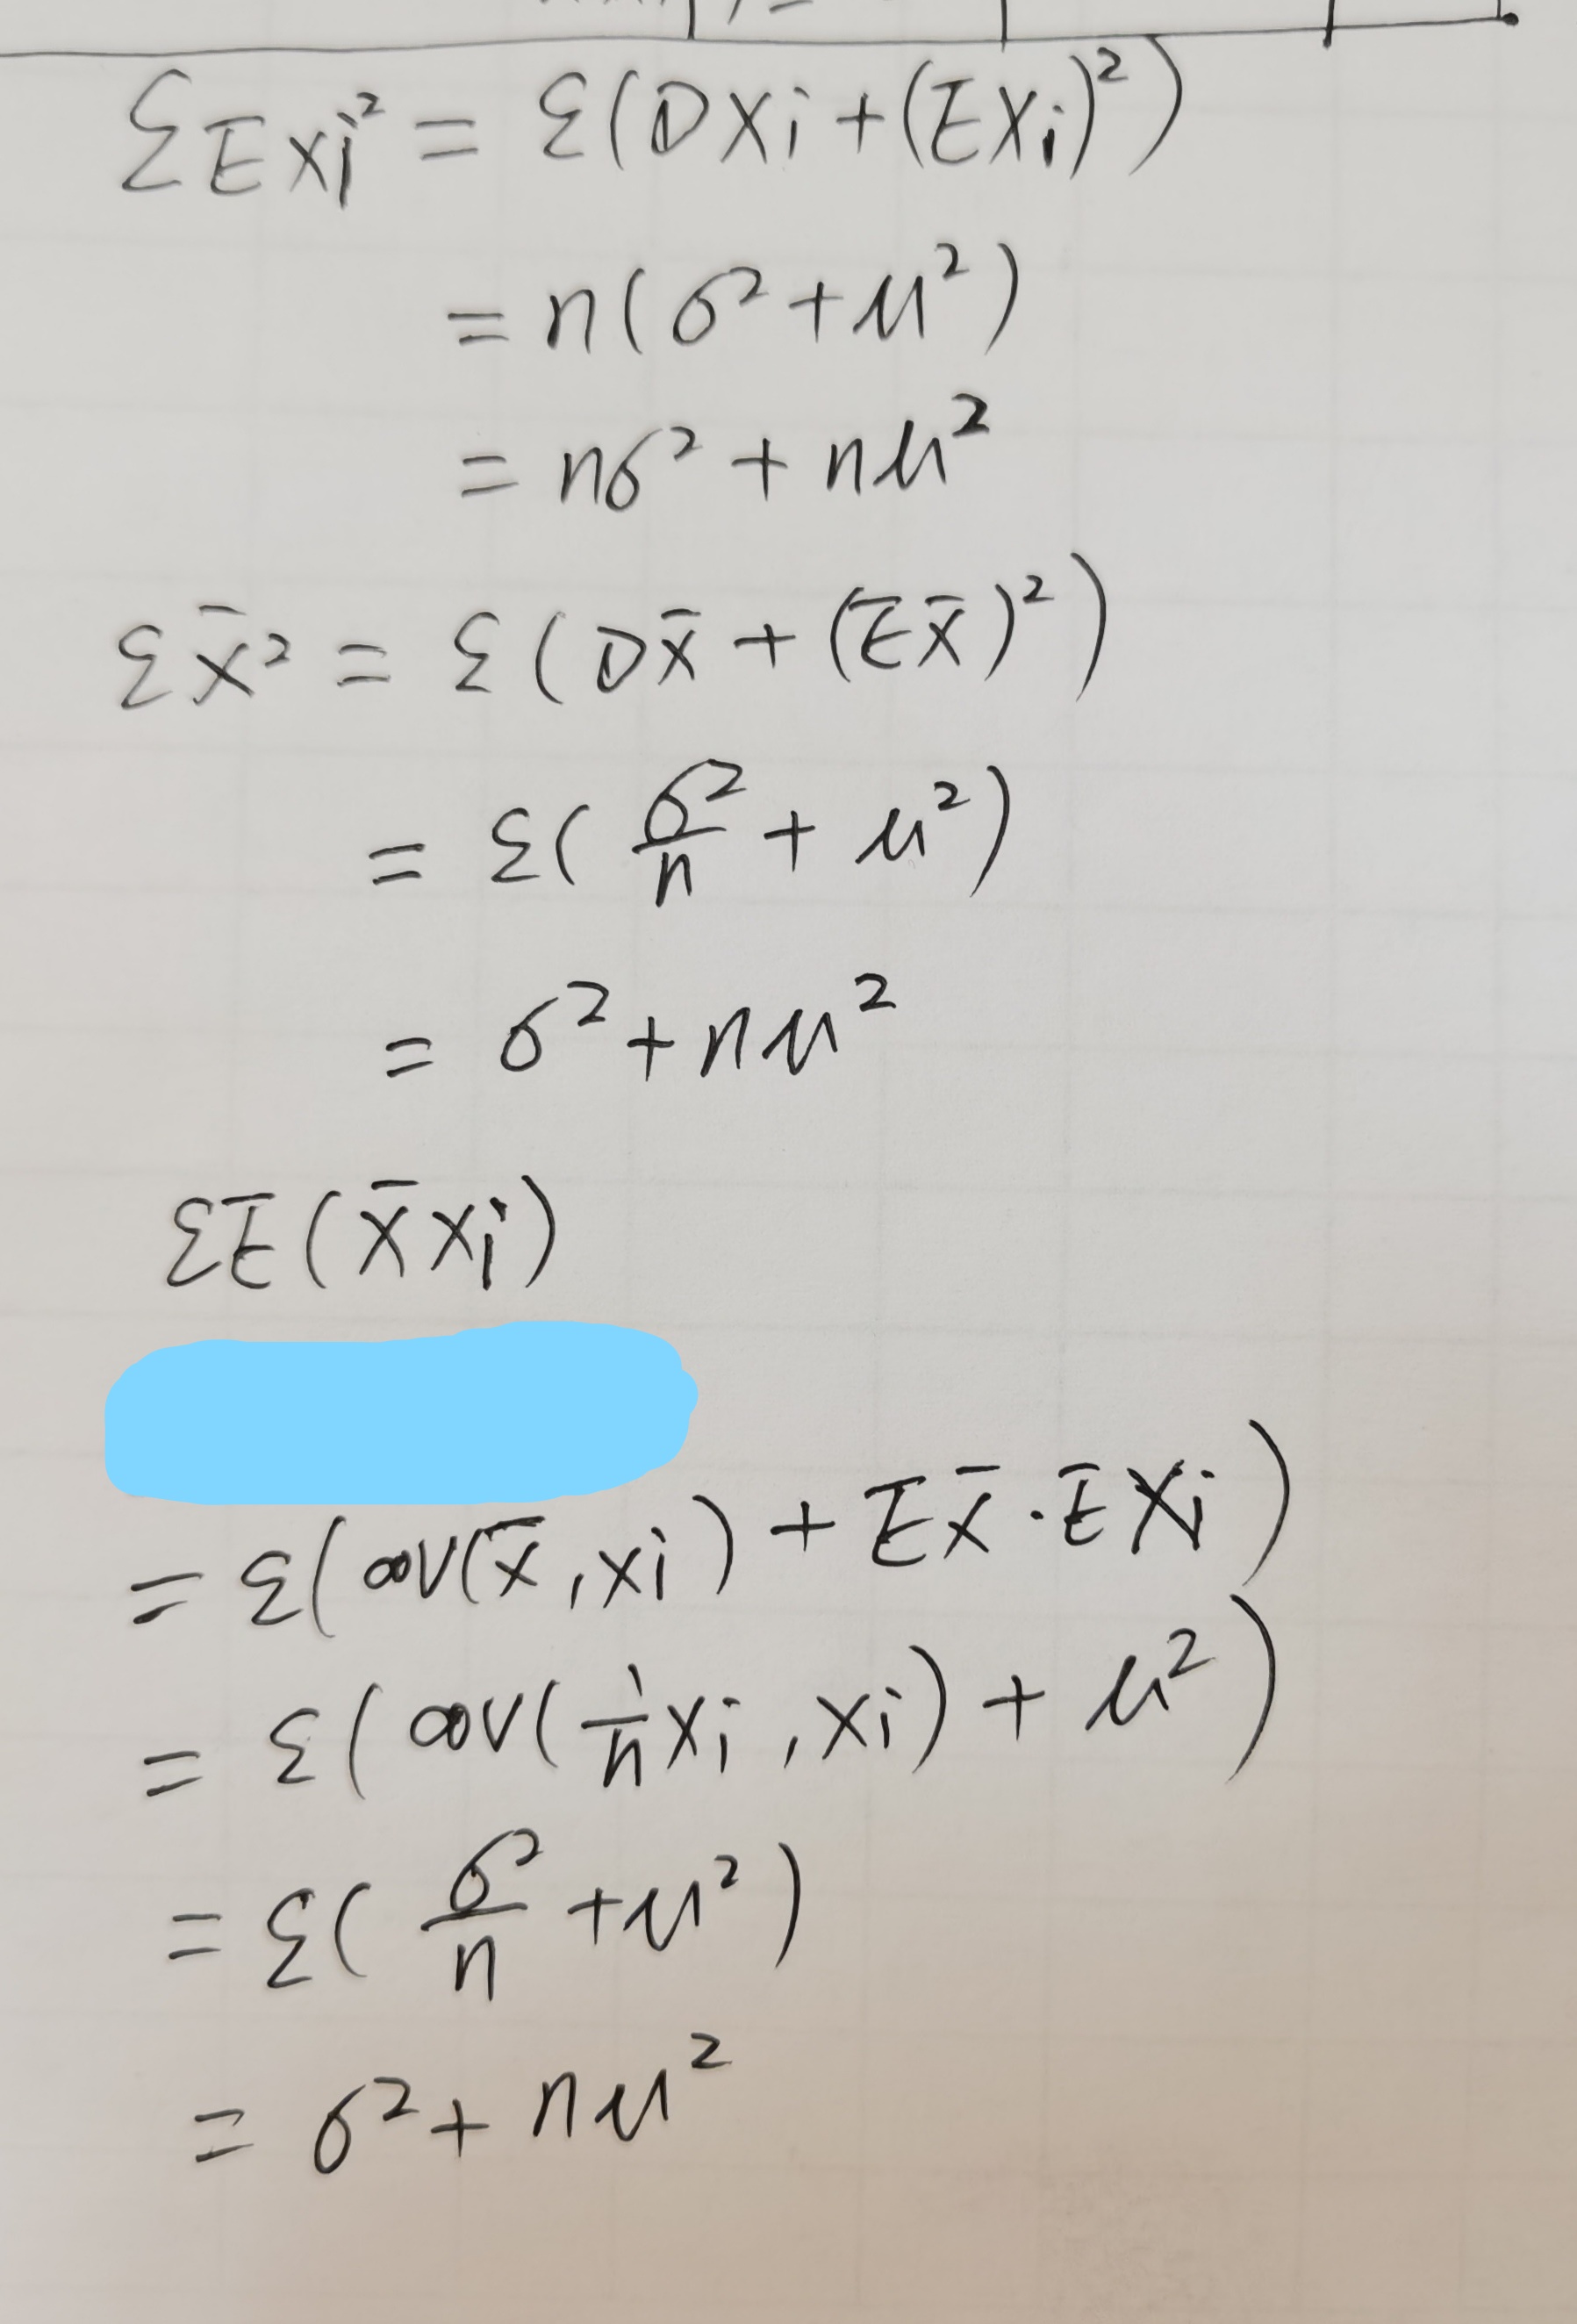 ΣEXi² = Σ(DXi + (EXi)²)
= n(σ² + μ²)
= nσ² + nμ²
Σx̄² = Σ(Dx̄ + (Ex̄)²)
= Σ(σ²/n + μ²)
= σ² + nμ²
ΣE(x̄xi)
= Σ(cov(x̄,xi) + Ex̄·EXi)
= Σ(cov(1/n xi, xi) + μ²)
= Σ(σ²/n + μ²)
= σ² + nμ²